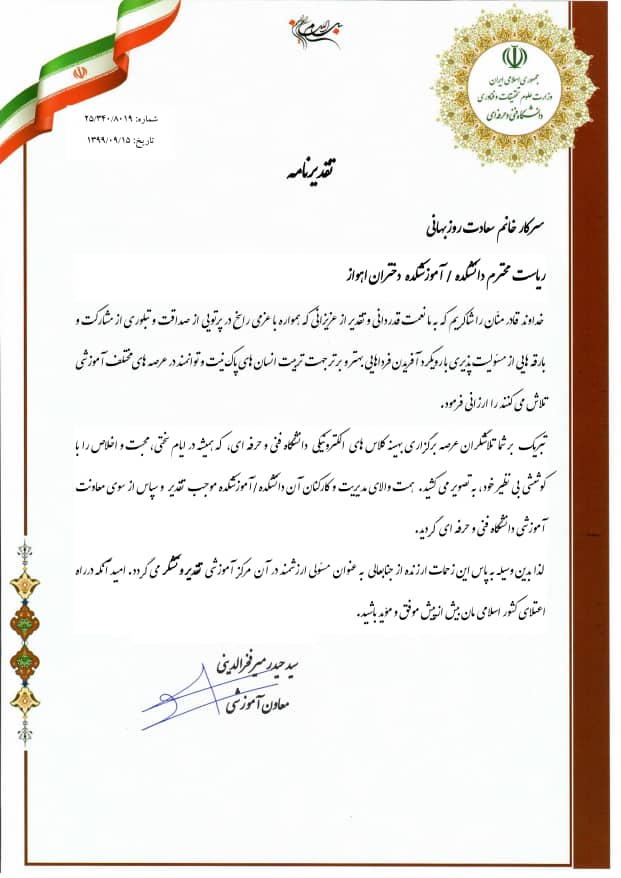 بسم الله الرحمن الرحیم
جمهوری اسلامی ایران
وزارت علوم تحقیقات و فناوری
دانشگاه فنی و حرفه ای
شماره: ۲۵/۳۴۰/۸۰۱۹
تاریخ: ۱۳۹۹/۰۹/۱۵
تقدیرنامه
سرکار خانم سعادت روزبهانی
ریاست محترم دانشکده / آموزشکده دختران اهواز
خداوند قادر منّان را شاکریم که به ما نعمت قدردانی و تقدیر از عزیزانی که همواره با عزمی راسخ در پرتویی از صداقت و تبلوری از مشارکت و
بارقه هایی از مسئولیت پذیری با رویکرد آفریدن فرداهایی بهتر و برتر جهت تربیت انسان های پاک نیت و توانمند در عرصه های مختلف آموزشی
تلاش می کنند را ارزانی فرمود.
تبریک بر شما تلاشگران عرصه برگزاری بهینه کلاس های الکترونیکی دانشگاه فنی و حرفه ای، که همیشه در ایام سختی، محبت و اخلاص را با
کوششی بی نظیر خود، به تصویر می کشید. همت والای مدیریت و کارکنان آن دانشکده/آموزشکده موجب تقدیر و سپاس از سوی معاونت
آموزشی دانشگاه فنی و حرفه ای گردید.
لذا بدین وسیله به پاس این زحمات ارزنده از جنابعالی به عنوان مسئولی ارزشمند در آن مرکز آموزشی تقدیر و تشکر می گردد. امید آنکه در راه
اعتلای کشور اسلامی مان بیش از پیش موفق و مؤید باشید.
سید حیدر میرفخرالدینی
معاون آموزشی